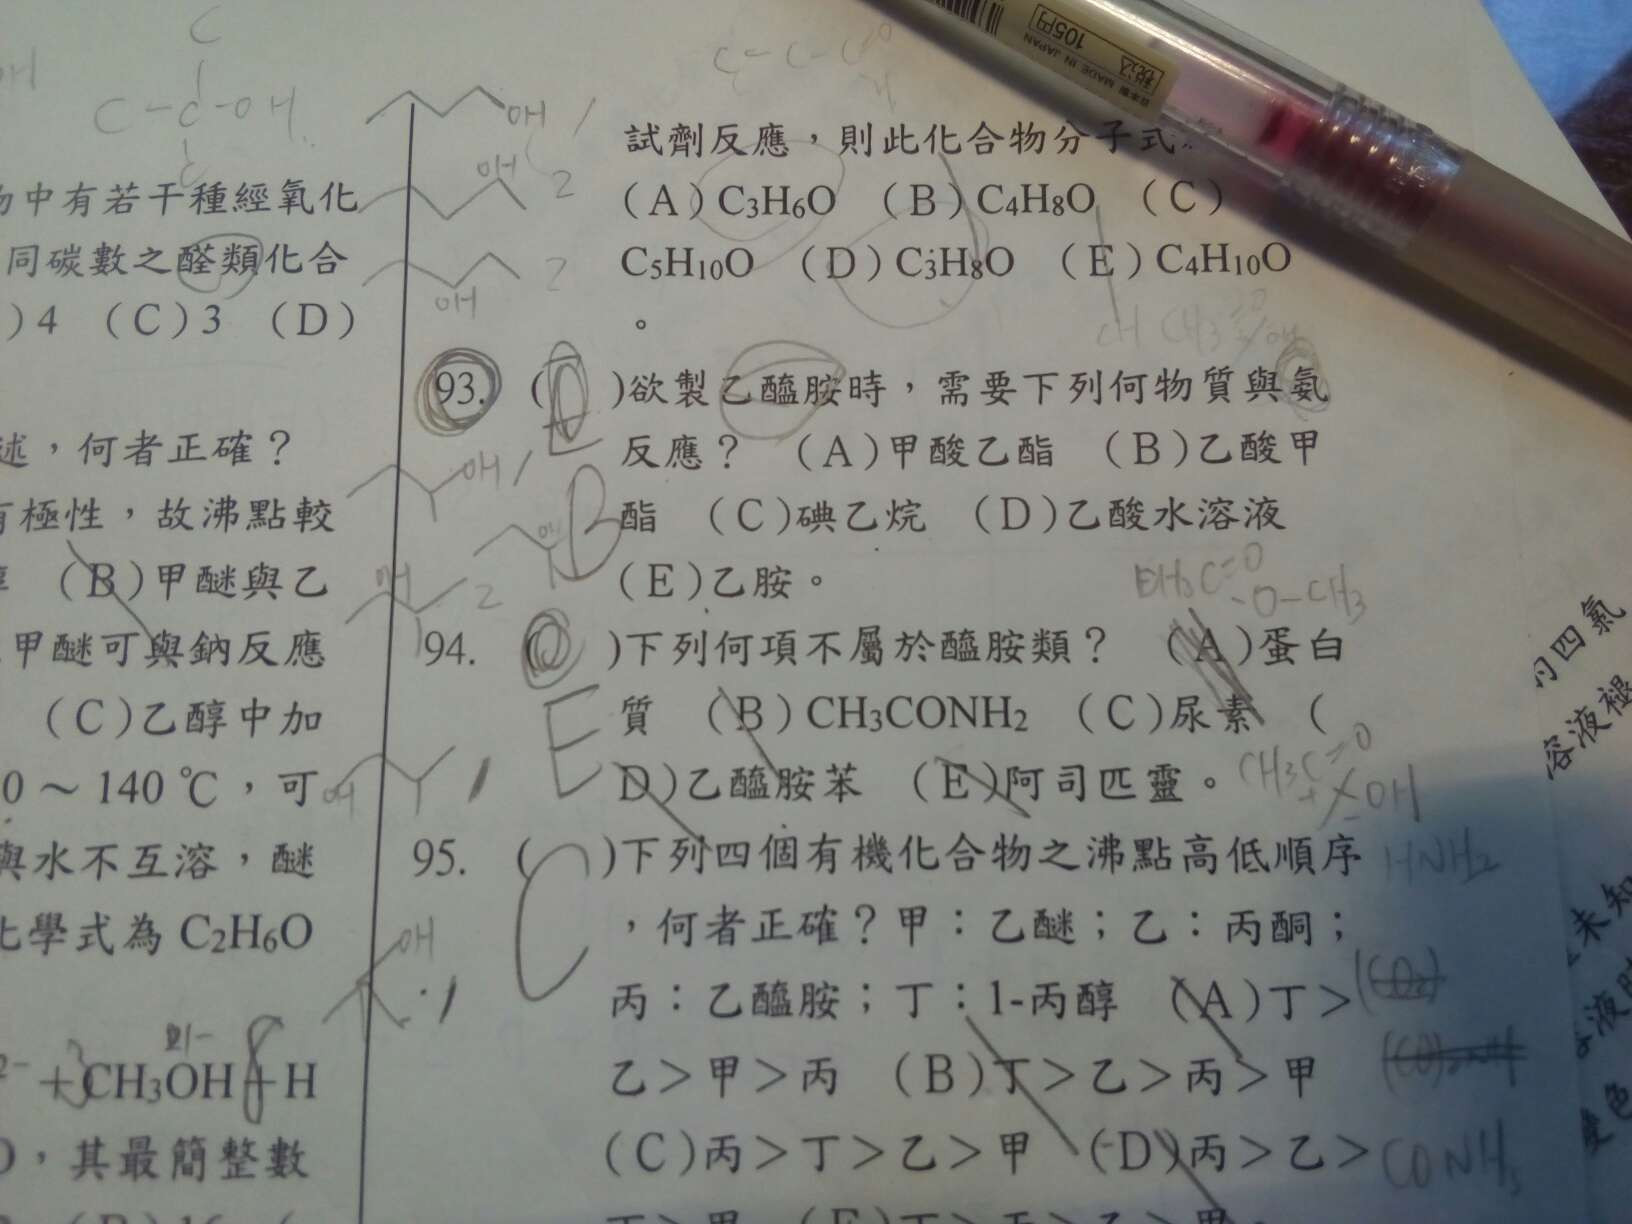 物中有若干種經氧化
同碳數之醛類化合
)4 (C)3 (D)
述，何者正確？
有極性，故沸點較
(B)甲醚與乙
甲醚可與鈉反應
(C)乙醇中加
0～140℃，可
與水不互溶，醚
化學式為C2H6O
2- +CH3OH+H
，其最簡整數
試劑反應，則此化合物分子式
(A)C3H6O (B)C4H8O (C)
C5H10O (D)C3H8O (E)C4H10O
。
93. ( )欲製乙醯胺時，需要下列何物質與氨
反應？ (A)甲酸乙酯 (B)乙酸甲
酯 (C)碘乙烷 (D)乙酸水溶液
(E)乙胺。
94. ( )下列何項不屬於醯胺類？ (A)蛋白
質 (B)CH3CONH2 (C)尿素 (
D)乙醯胺苯 (E)阿司匹靈。
95. ( )下列四個有機化合物之沸點高低順序
，何者正確？甲：乙醚；乙：丙酮；
丙：乙醯胺；丁：1-丙醇 (A)丁>
乙>甲>丙 (B)丁>乙>丙>甲
(C)丙>丁>乙>甲 (D)丙>乙>
C
C-C-OH
C
OH 1
OH 2
OH 2
OH 1
OH 2
OH 1
OH 1
B
E
C
CH3C=O
-O-CH3
CH3C=O
OH
HNH2
CONH3
税込
105円
MADE IN JAPAN
日本製
四氯
溶液褪
未知
色